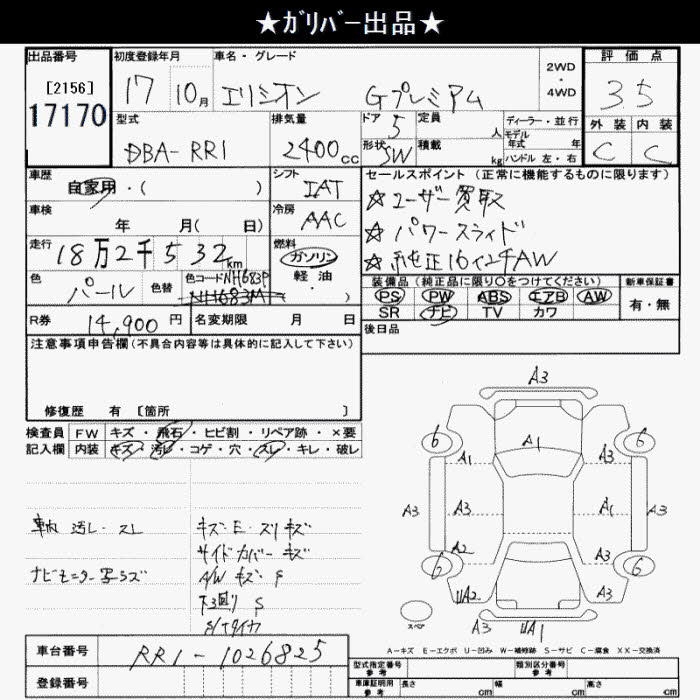 ★ガリバー出品★
出品番号
[2156]
17170
初度登録年月
17 10月
車名・グレード
エリシオン Gプレミアム
2WD
・
4WD
評価点
35
外装 内装
C C
型式
DBA-RR1
排気量
2400cc
ドア 5
形状 SW
定員 人
積載 kg
ディーラー・並行
モデル年式 年
ハンドル 左・右
車歴
自家用・( )
シフト
IAT
車検
年 月( 日)
冷房
AAC
走行
18万2千532km
燃料
ガソリン
軽油・
( )
色
パール
色替
色コードNH683P
NH683M
R券
14,900円
名変期限 月 日
セールスポイント(正常に機能するものに限ります)
☆ユーザー買取
☆パワースライド
☆純正16インチAW
装備品(純正品に限り○をつけてください)
PS PW ABS エアB AW
SR ナビ TV カワ
新車保証書
有・無
後日品
注意事項申告欄(不具合内容等は具体的に記入して下さい)
修復歴 有 [箇所 ]
検査員
記入欄
FW キズ・飛石・ヒビ割・リペア跡・×要
内装 キズ・汚レ・コゲ・穴・スレ・キレ・破レ
車内 汚レ・スレ
ナビモニター写らズ
キズ・E・スリキズ
サイドカバー キズ
A/W キズ・S
下回り S
S/Tタイヤ
A3
6 A1 6
A1 A3
A3 A3 A1 A3
A2 A3
6 6
UA2 A3
A3 UA1
スペア
A-キズ E-エクボ U-凹み W-補修跡 S-サビ C-腐食 XX-交換済
車台番号
RR1-1026825
登録番号
型式指定番号
参考
類別区分番号
参考
車庫証明用
参考
長さ cm 幅 cm 高さ cm